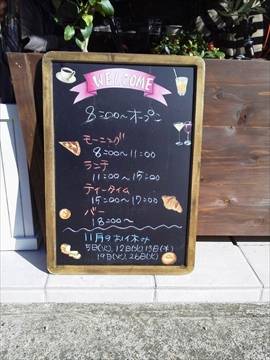 WELCOME
8:00〜オープン
モーニング
8:00〜11:00
ランチ
11:00〜15:00
ティータイム
15:00〜17:00
バー
18:00〜
11月のお休み
5日(火), 12日(火) 13日(水)
19日(火), 26日(火)